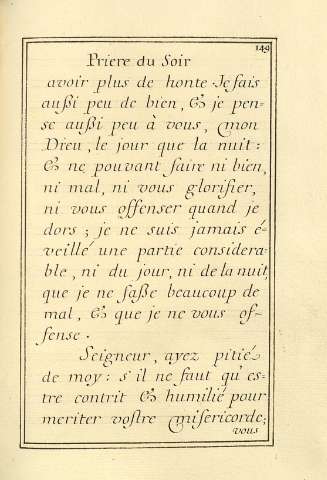 149
Priere du Soir
avoir plus de honte. Je fais
außi peu de bien, & je pen-
se außi peu à vous, mon
Dieu, le jour que la nuit:
& ne pouvant faire ni bien,
ni mal, ni vous glorifier,
ni vous offenser quand je
dors; je ne suis jamais é-
veillé une partie considera-
ble, ni du jour, ni de la nuit,
que je ne faße beaucoup de
mal, & que je ne vous of-
fense.
Seigneur, ayez pitié
de moy: s'il ne faut qu'es-
tre contrit & humilié pour
meriter vostre misericorde;
vous